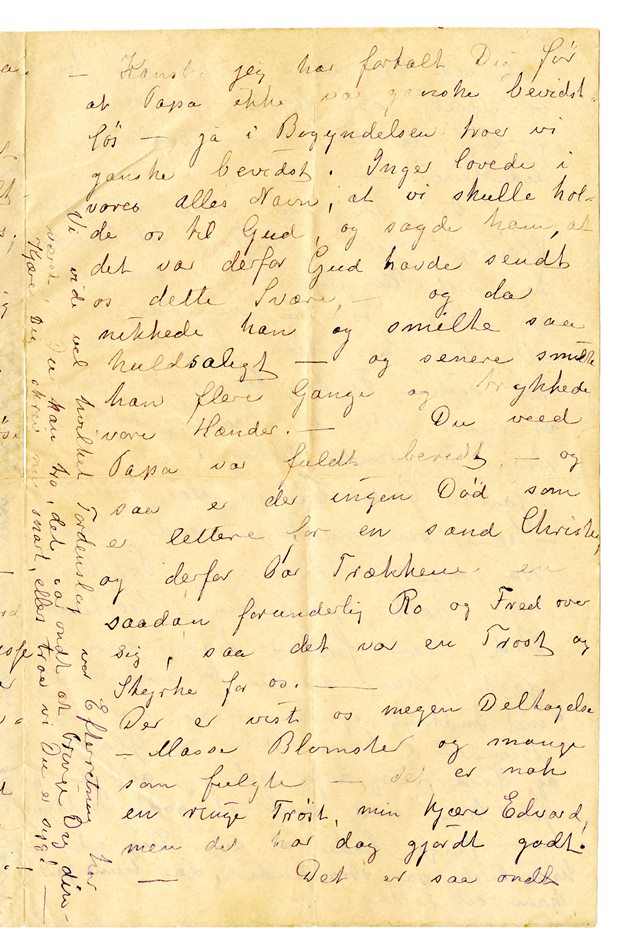 — Kanske jeg har fortalt Dig før
at Papa ikke var ganske bevidst-
løs — ja i Begyndelsen troer vi
ganske bevidst. Inger lovede i
vores alles Navn, at vi skulle hol-
de os til Gud, og sagde ham, at
det var derfor Gud havde sendt
os dette Svære, — og da
nikkede han og smilte saa
huldsaligt — og senere smilte
han flere Gange og trykkede
vore Hænder. — Du veed
Papa var fuldt bevidt, — og
saa er der ingen Død som
er lettere for en sand Christen,
og derfor var Trækkene en
saadan forunderlig Ro og Fred over
sig, saa det var en Trøst og
Styrke for os. —
Der er vist os megen Deltagelse
— Masse Blomster og mange
som fulgte — det er nok
en ringe Trøst, min kjære Edvard,
men det har dog gjordt godt.
— Det er saa ondt
Vi vide vel hvilket Tordenslag vor Efterretning har
været, Du kan tro, det var ondt at bringe Dig den —
Kjære Du skriv nu snart, ellers troe vi Du er syg! —